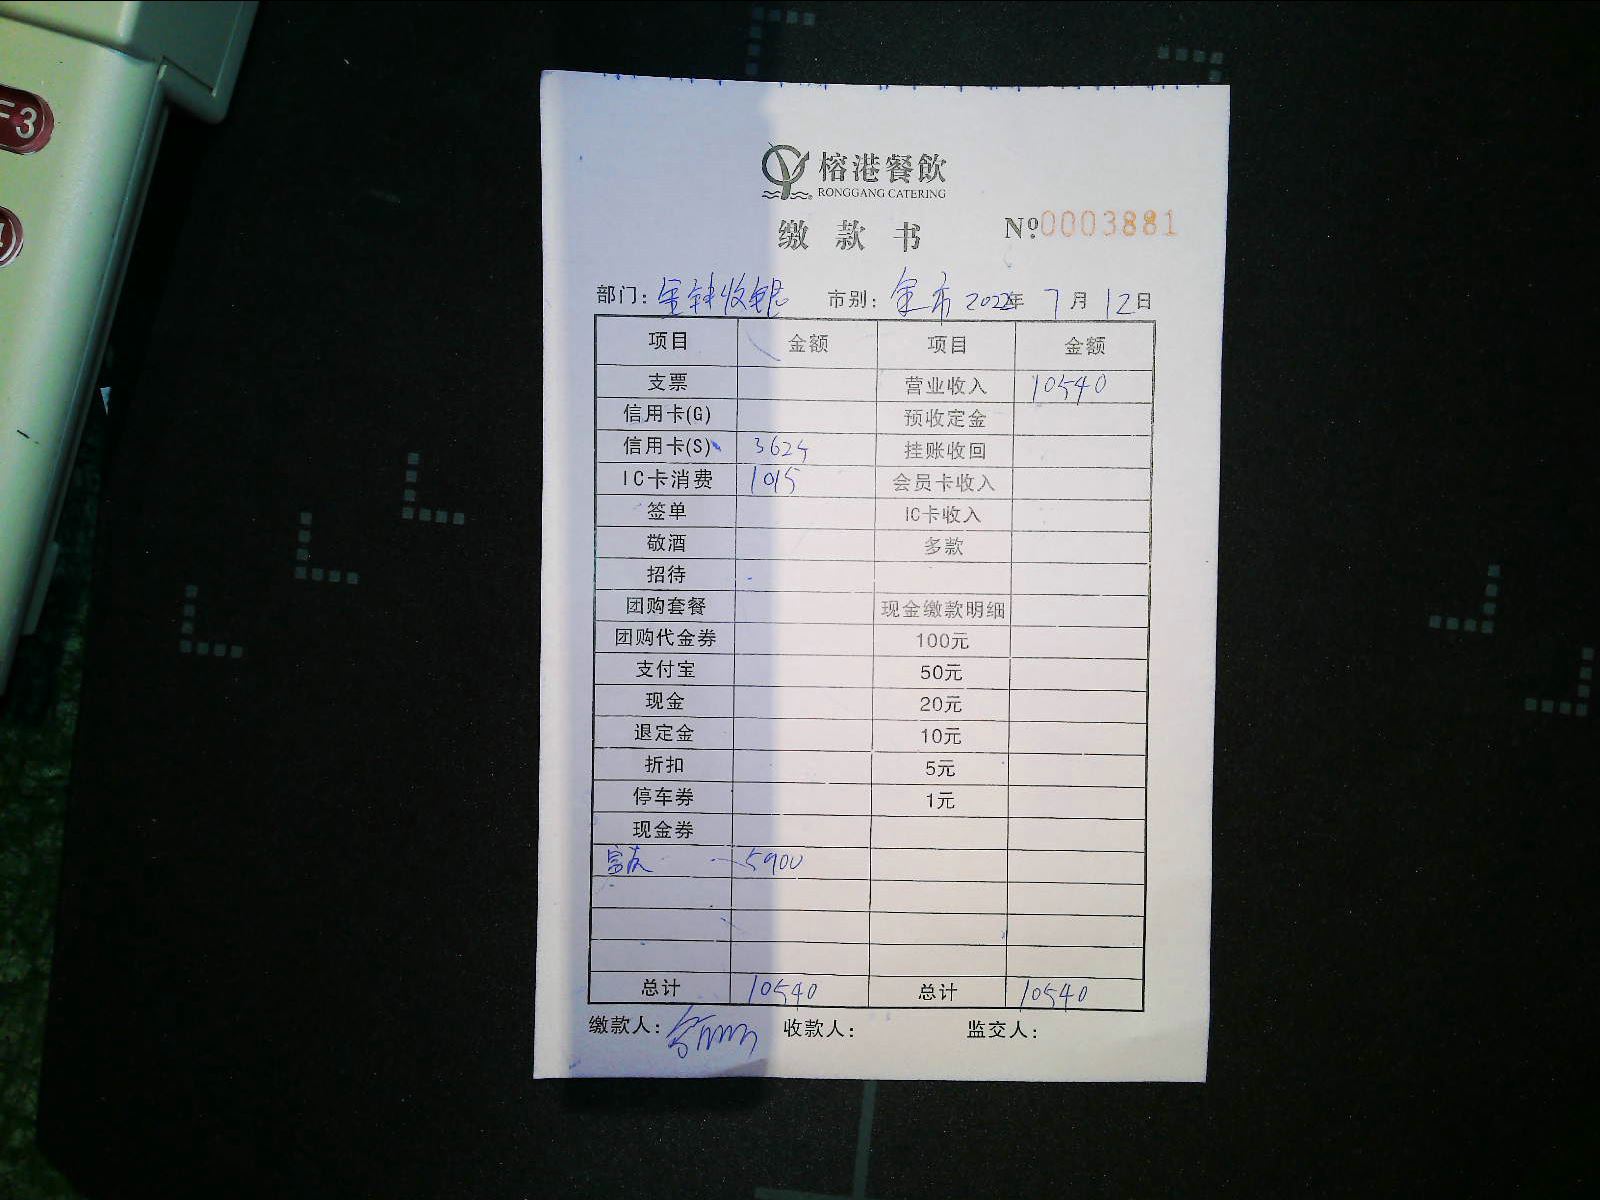 F3
榕港餐飲
RONGGANG CATERING
缴款书 Nº:0003881
部门: 金钟收银 市别: 全市 2022年 7月 12日
项目 金额 项目 金额
支票 营业收入 10540
信用卡(G) 预收定金
信用卡(S) 3625 挂账收回
IC卡消费 1015 会员卡收入
签单 IC卡收入
敬酒 多款
招待
团购套餐 现金缴款明细
团购代金券 100元
支付宝 50元
现金 20元
退定金 10元
折扣 5元
停车券 1元
现金券
富友 5900
总计 10540 总计 10540
缴款人: 收款人: 监交人: